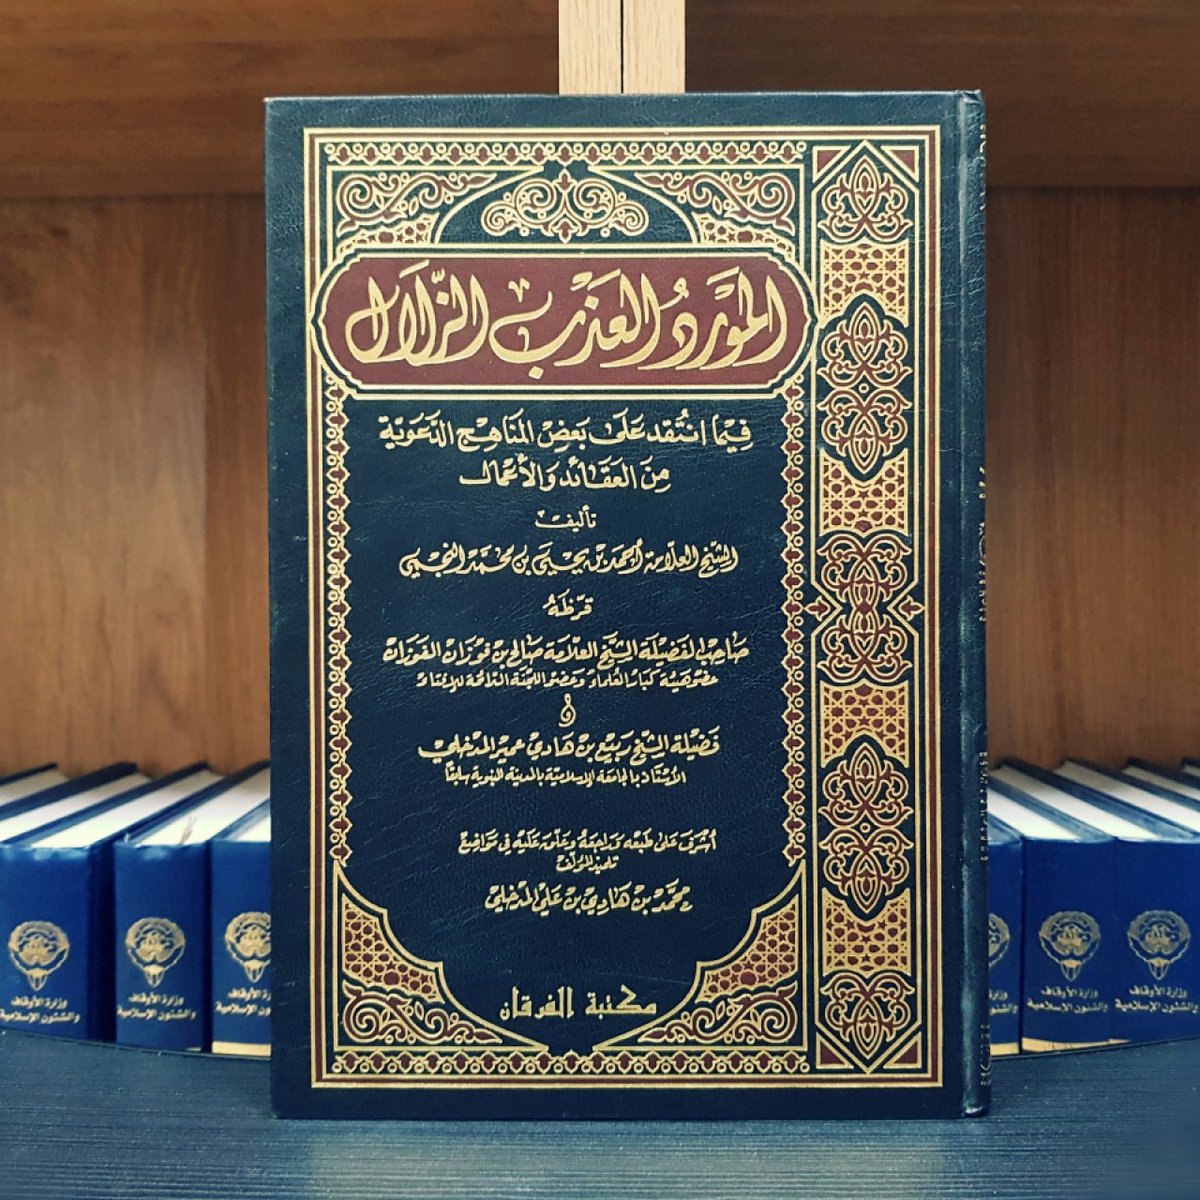 المَوْرِدُ العَذْبُ الزُّلَال
فِيمَا انْتُقِدَ عَلَى بَعْضِ المَنَاهِجِ الدَّعَوِيَّة
مِنَ العَقَائِدِ وَالأَعْمَال
تأليف
الشيخ العلامة أحمد بن يحيى بن محمد النجمي
قرّظه
صاحب الفضيلة الشيخ العلامة صالح بن فوزان الفوزان
عضو هيئة كبار العلماء وعضو اللجنة الدائمة للإفتاء
و
فضيلة الشيخ ربيع بن هادي عمير المدخلي
الأستاذ بالجامعة الإسلامية بالمدينة النبوية سابقاً
أشرف على طبعه مراجعة وعلق عليه في مواضع
تلميذ المؤلف
محمد بن هادي بن علي المدخلي
مكتبة الفرقان
وزارة الأوقاف
والشئون الإسلامية
وزارة الأوقاف
والشئون الإسلامية
وزارة الأوقاف
والشئون الإسلامية
وزارة الأوقاف
والشئون الإسلامية
وزارة الأوقاف
والشئون الإسلامية